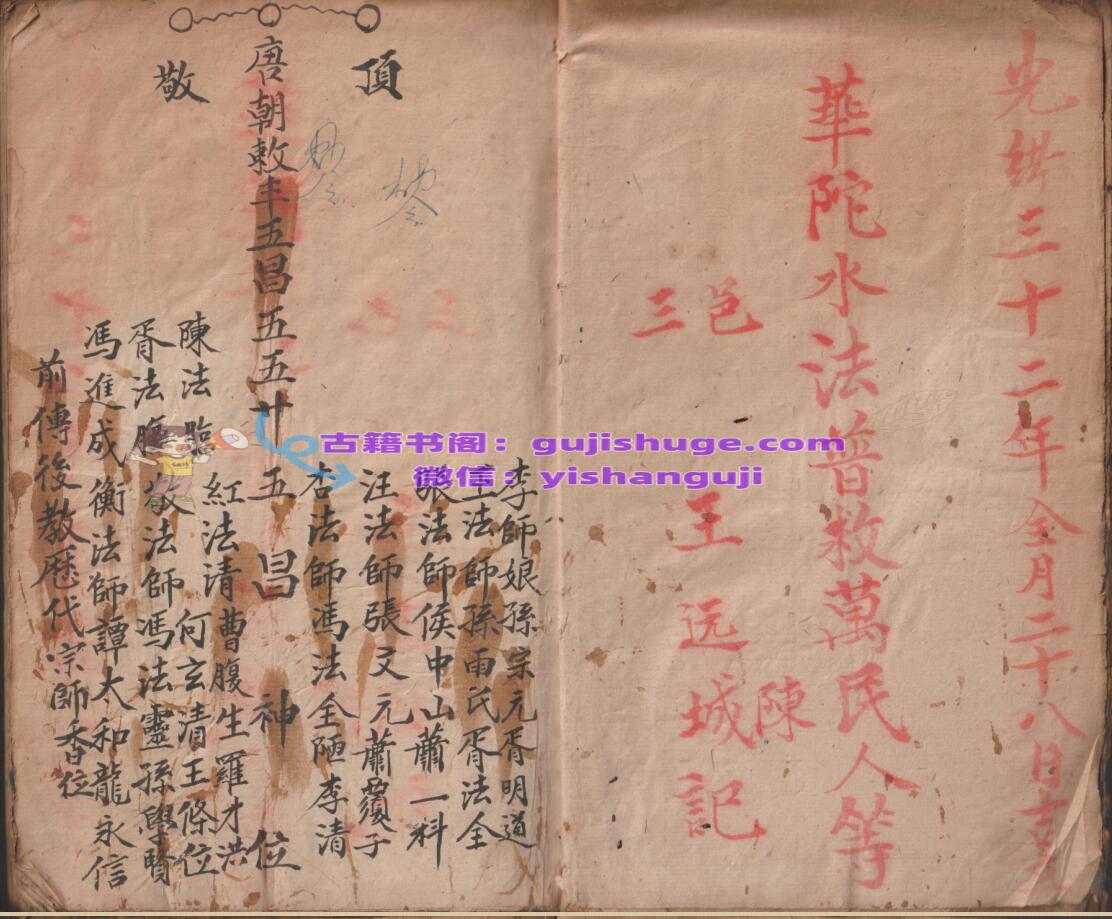 光緒三十二年全月二十八日吉
華陀水法普救萬民人等
邑
三
王远城記
陳
頂
敬
唐朝敕丰五昌五五廿五昌神位
李師娘孫宗元胥明道
王法師孫雨氏胥法全
張法師侯中山蕭一料
汪法師張又元蕭子
杏法師馮法全陋李清
紅法清曹腹生羅才洪
陳法臨何玄清王條位
胥法師馮法靈孫學賢
馮進成衡法師譚太和龍永信
前傳後教歷代宗師香位
古籍书阁：gujishuge.com
微信：yishanguji